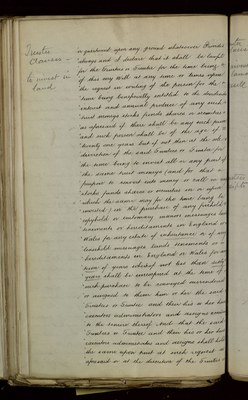 Trustee
Clauses
to invest in
land
in question upon any ground whatsoever Provided
always and I declare that it shall be lawful
for the Trustees or Trustee for the time being
of this my Will at any time or times upon
the request in writing of the person for the
time being beneficially entitled to the dividends
interest and annual produce of any such
trust moneys stocks funds shares or securities
as aforesaid if there shall be any such person
and such person shall be of the age of
twenty one years but if not then at the
discretion of the said Trustees or Trustee for
the time being to invest all or any part of
the same trust moneys (and for that
purpose to convert into money or call in any
stocks funds shares or securities in or upon
which the same may for the time being be
invested) in the purchase of any freehold
copyhold or customary manors messuages lands
tenements or hereditaments in England or
Wales for any estate of inheritance or of any
leasehold messuages lands tenements or
hereditaments in England or Wales for
term of years whereof not less than sixty
years shall be unexpired at the time of
such purchase to be conveyed surrendered
or assigned to them him or her the said
Trustees or Trustee and their his or her
executors administrators and assigns
to the and that the said
Trustees or Trustee and their his or her
executors administrators and assigns shall hold
the same upon such request as
aforesaid or at the discretion of the Trustees